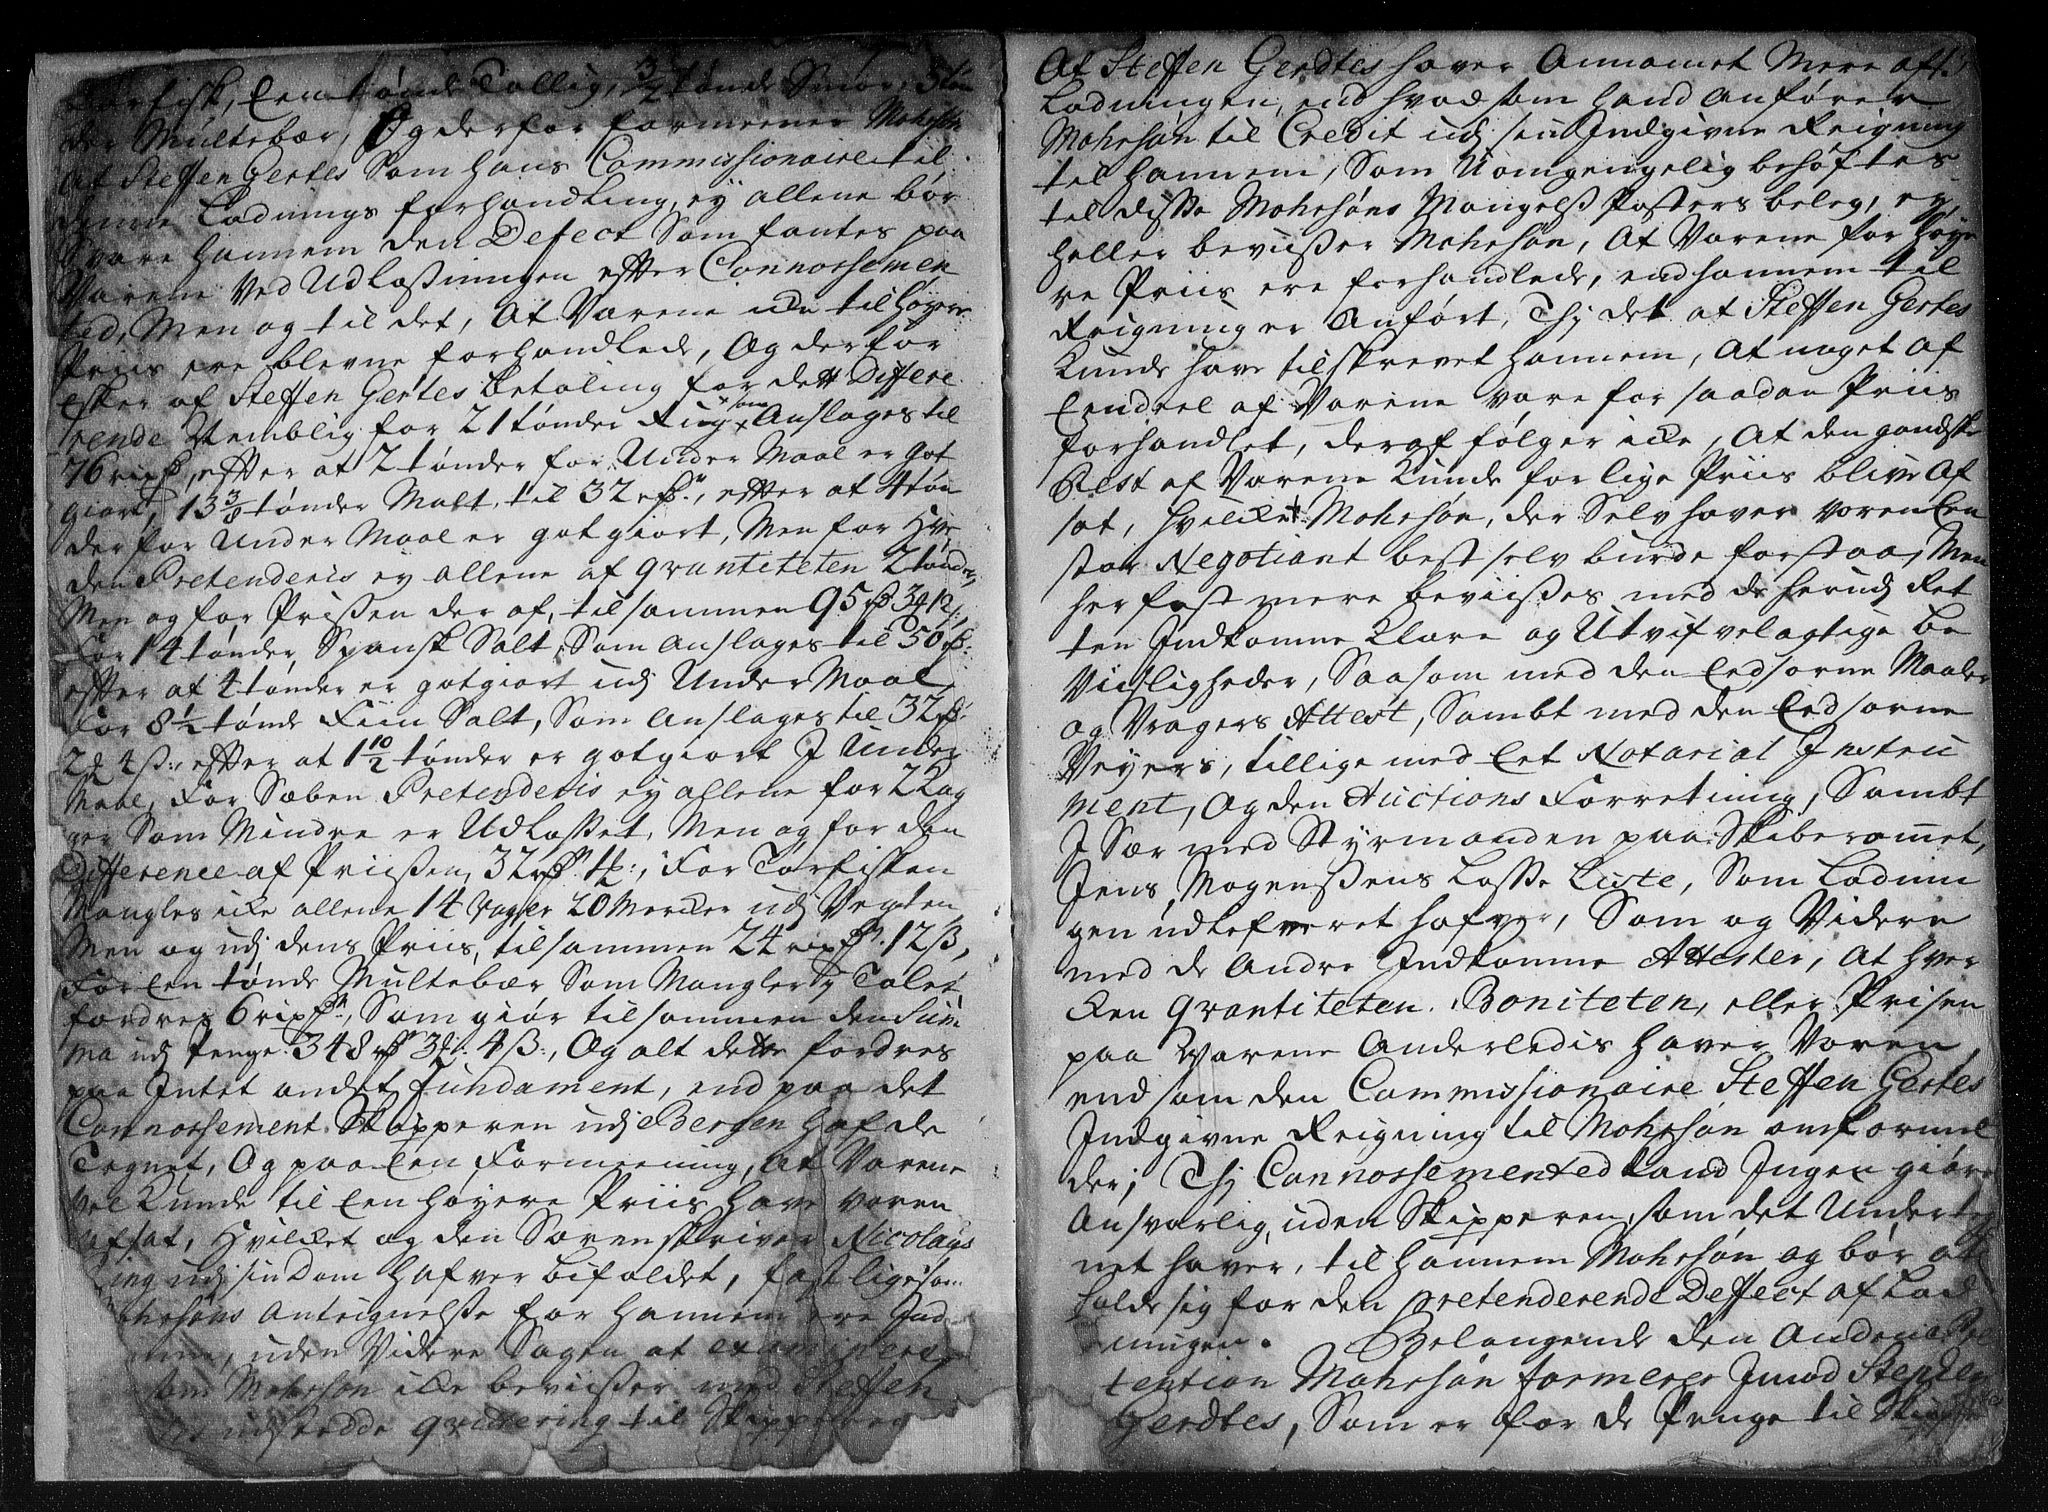 Tørfisk, Een tønde Tallig, 3/2 tønde Smør,
der Multebær, Og derfor formeener Mohrsøn
At Steffen Gertes Som hans Commissionaire til
denne Ladnings forhandling, ey allene bør
Svare hannem den Defect Som fantes paa
Varene Ved Udlossningen efter Connossemen
ted, Men og til det, At Varene icke til høyere
Priis ere blevne forhandlede, Og derfor
esker af Steffen Gertes betaling for dett Differe
rende Nemblig for 21 tønder Rug, som Anslages til
76 rixd, efter at 2 tønder for Under Maal er got
giort, 13 3/8 tønder Malt, til 32 rd, efter at 4 tøn
der for Under Maal er gotgiort, Men for Hve
den Prætenderis ey allene af qvantiteten 2 tønder,
Men og for Prissen der af, tilsammen 95 rd 3 12,
For 14 tønder Spansk Salt, Som anslages til 50 rd
efter at 4 tønder er gotgiort udj Under Maal,
For 8½ tønde Fiin Salt, Som anslages til 32 rd
2 4 ß, efter at 1 10/2 tønder er gotgiort J Under
Maal, For Sæben Prætenderis ey allene for 2 Kag
ger Som Mindre er Udlosset, Men og for den
Difference af Priissen, 32 rd, For Tørfisken
Mangles icke allene 14 Vager 20 Mercker udj Vegten
Men og udj dens Priis, tilsammen 24 rixd 12 ß,
For Een tønde Multebær Som Mangler J Talet
fordres 6 rixd, Som giør tilsammen den Sum
ma udj Penge 348 rd 3 4 ß, Og alt dette fordres
paa Intet andet fundament, end paa det
Connossement Skipperen udj Bergen hafde
Tegnet, Og paa Een Formeening, At Varene
vel Kunde til Een høyere Priis have voren
Afsat, Hvilcket og den Sorenskriver Nicolays
udj sin Dom hafver bifaldet, fast ligesom
Mohrsøns Antegnelsse for hannem ere Ind
uden Videre Sagen at examinere
som Mohrsøn icke bevisser med Steffen
udstædde qvittering til Skipperen
At Steffen Gerdtes haver Annamet Mere af
Ladningen, end hvad som hand anfører
Mohrsøn til Credit udj sin Indgivne Reigning
til hannem, Som Uomgengelig behøftes
til disse Mohrsøns Mangels Posters beleg, ey
heller bevisser Mohrsøn, At Varene for høye
re Priis ere forhandlede, end hannem til
Reigning er Anført, Thj det at Steffen Gertes
Kunde have tilskrevet hannem, At noget af
Eendeel af Varene vare for saadan Priis
forhandlet, deraf følger icke, At den gandske
Rest af Varene Kunde for lige Priis blive Af
sat, hvilcket Mohrsøn, der Selv haver voren Een
stor Negotiant best selv burde forstaa, Men
her fast mere beviises med de herudj Ret
ten Indkomne Klare og Utvifvelagtige be
Viisligheder, Saasom med den Eedsorne Maaler
og Vragers Attest, Sambt med den Eedsorne
Veyers, tillige med Eet Notarial Instru
ment, Og den Auctions Forretning, Sambt
J Sær med Styrmanden paa Skibsrommet,
Jens Mogenssens Losse Liste, Som Ladnin
gen udlefveret hafver, Som og Videre
med de Andre Indkomne Attester, At hver
cken qvantiteten, Boniteten, eller Prisen
paa Varene Anderledis haver Voren,
end som den Commissionaire Steffen Gertes
Indgivne Reigning til Mohrsøn omformel
der; Thj Connossemented kand Ingen giøre
Ansvarlig, uden Skipperen, som det Underteg
net haver, til hannem Mohrsøn og bør at
holde sig for den prætenderende Deffect af Lad
ningen. Belangende den Anden Præ
tention Mohrsøn formerer Jmod Steffen
Gerdtes, Som er for de Penge til Skipper